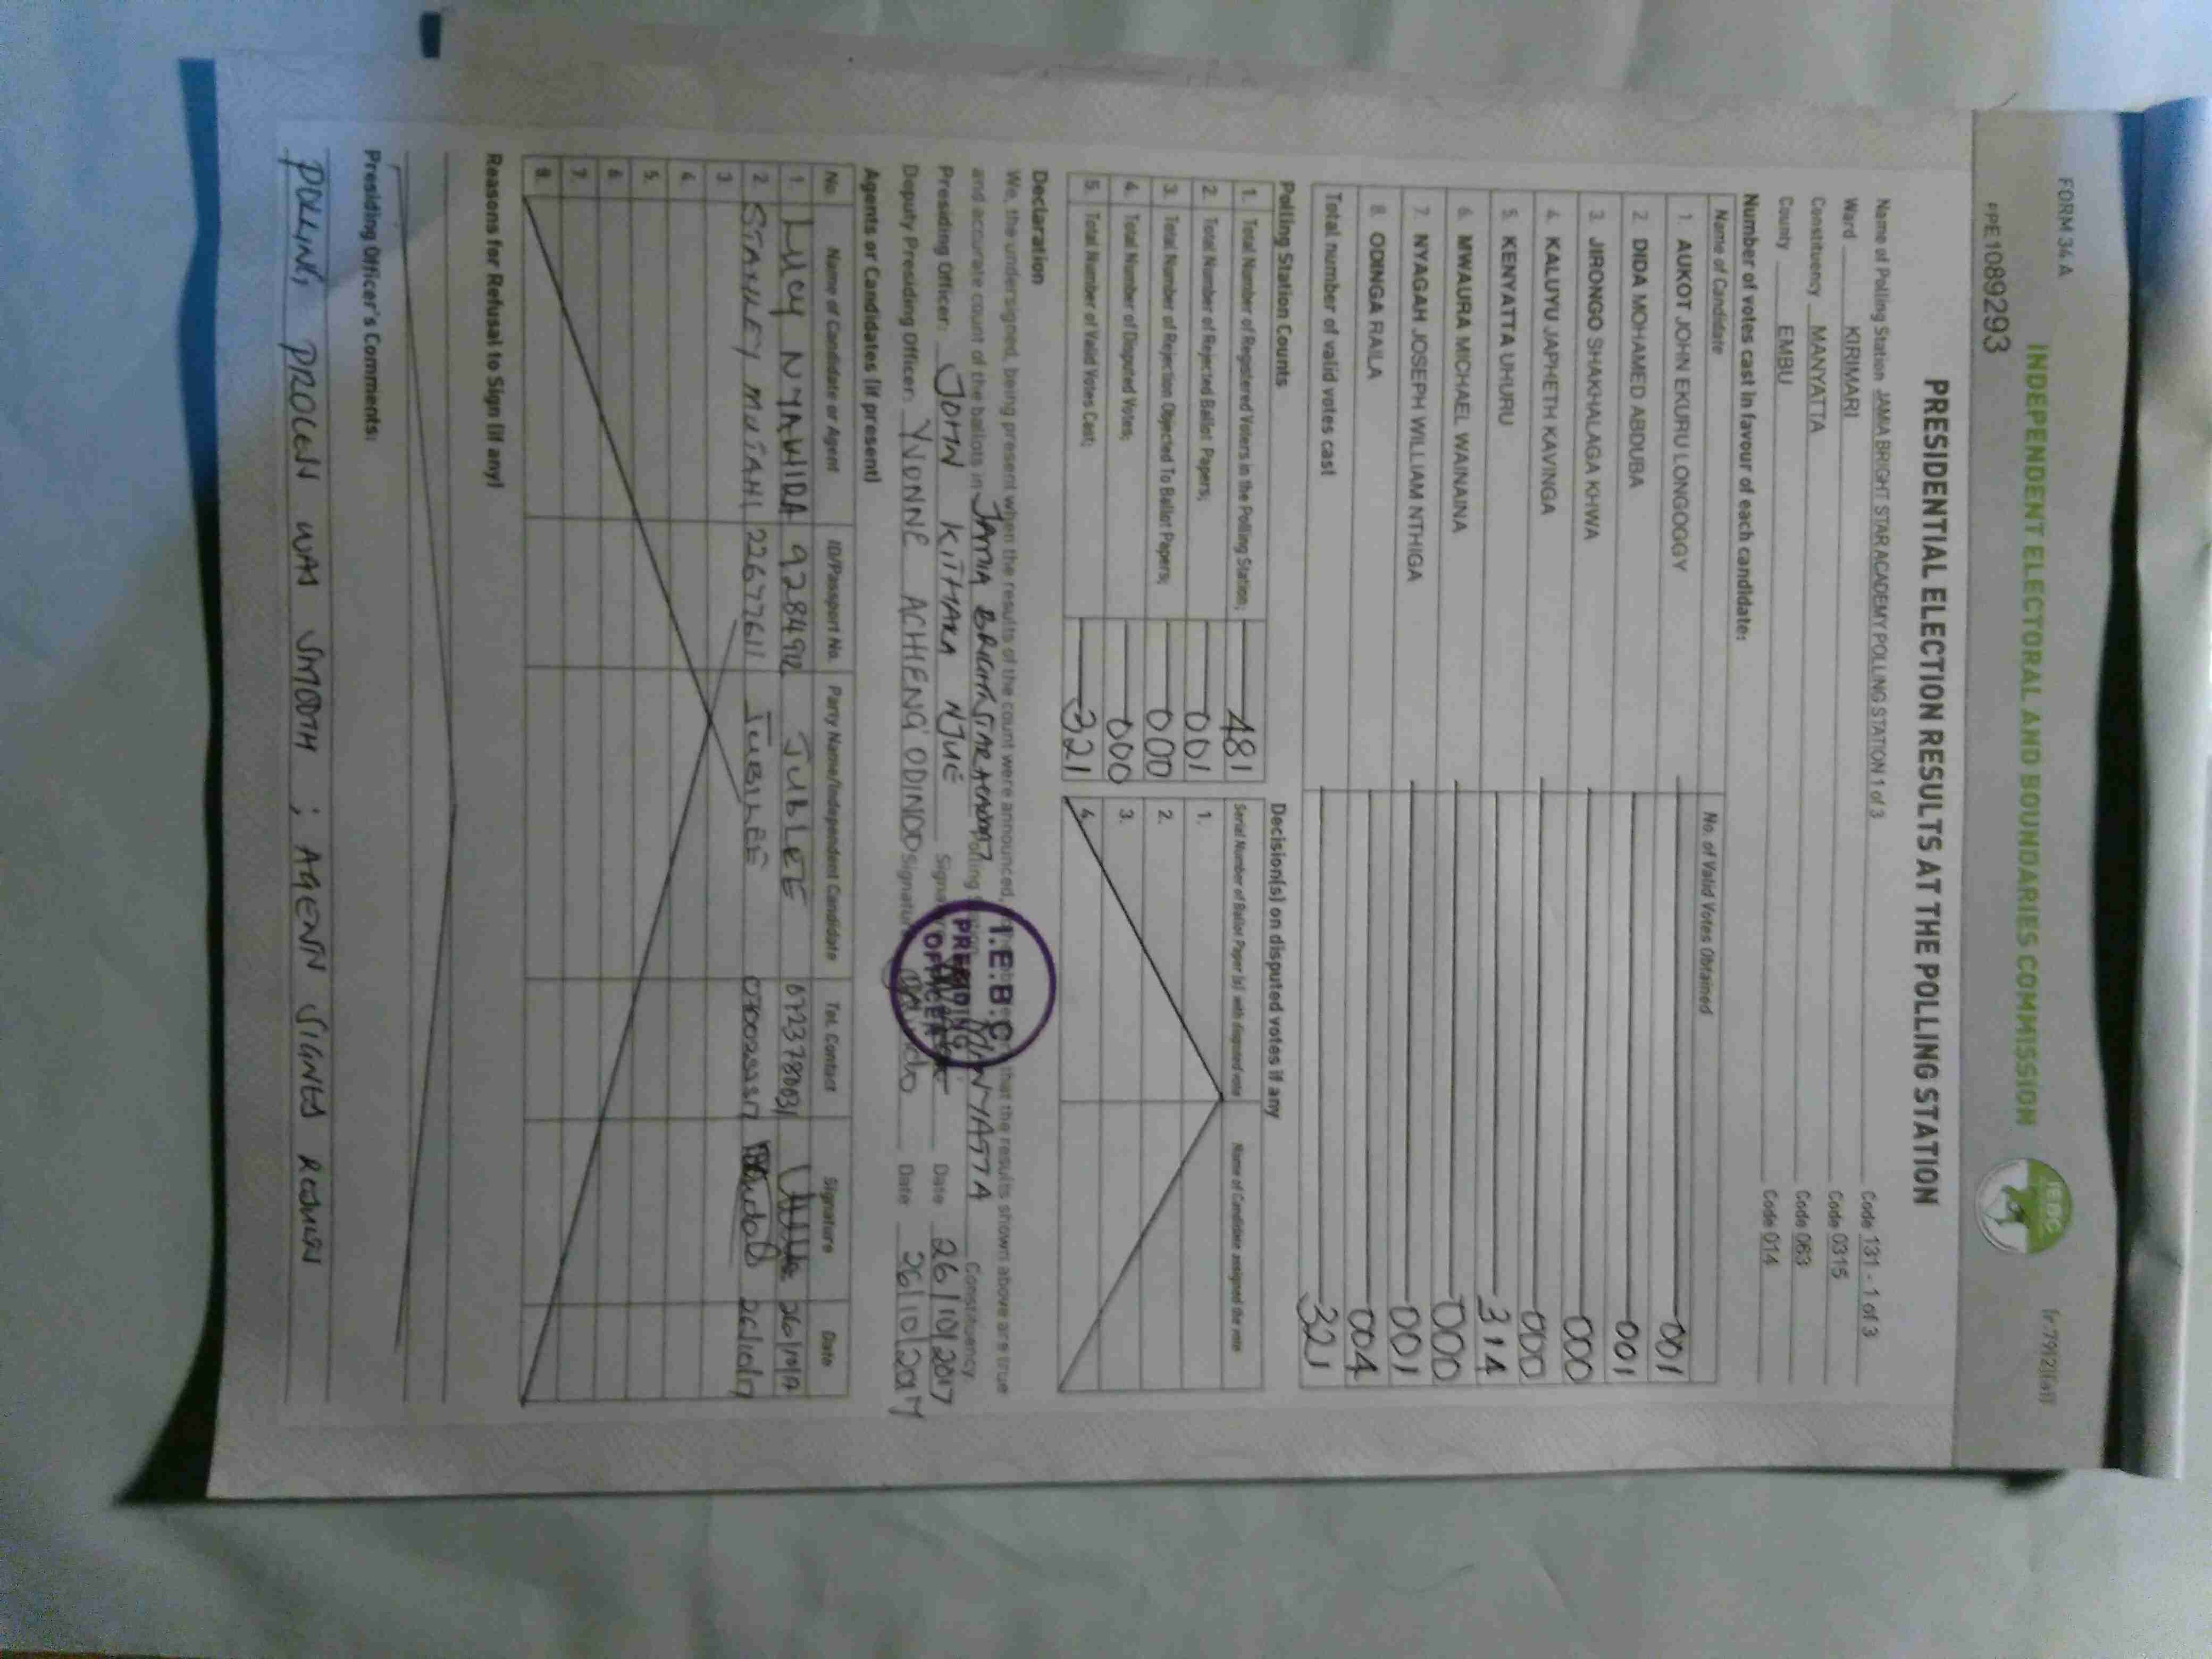 FORM 34 A
INDEPENDENT ELECTORAL AND BOUNDARIES COMMISSION
IEBC
PPE1089293
PRESIDENTIAL ELECTION RESULTS AT THE POLLING STATION
Name of Polling Station JAMIA BRIGHT STAR ACADEMY POLLING STATION 1 of 3 Code 131 - 1 of 3
Ward KIRIMARI Code 0315
Constituency MANYATTA Code 063
County EMBU Code 014
Number of votes cast in favour of each candidate:
Name of Candidate No. of Valid Votes Obtained
1. AUKOT JOHN EKURU LONGOGGY 001
2. DIDA MOHAMED ABDUBA 001
3. JIRONGO SHAKHALAGA KHWA 000
4. KALUYU JAPHETH KAVINGA 000
5. KENYATTA UHURU 314
6. MWAURA MICHAEL WAINAINA 000
7. NYAGAH JOSEPH WILLIAM NTHIGA 001
8. ODINGA RAILA 004
Total number of valid votes cast 321
Polling Station Counts
1. Total Number of Registered Voters in the Polling Station; 481
2. Total Number of Rejected Ballot Papers; 001
3. Total Number of Rejection Objected To Ballot Papers; 000
4. Total Number of Disputed Votes; 000
5. Total Number of Valid Votes Cast; 321
Decision(s) on disputed votes if any
Serial Number of Ballot Paper (s) with disputed vote Name of Candidate assigned the vote
1.
2.
3.
4.
Declaration
We, the undersigned, being present when the results of the count were announced, that the results shown above are true
and accurate count of the ballots in JAMIA BRIGHT STAR Polling MANYATTA Constituency
Presiding Officer: JOHN KITHAKA NJUE Date 26/10/2017
Deputy Presiding Officer: YVONNE ACHIENG' ODINDO Signature Date 26/10/2017
I.E.B.C
PRESIDING
OFFICER
Agents or Candidates (if present)
No. Name of Candidate or Agent ID/Passport No. Party Name/Independent Candidate Tel. Contact Signature Date
1. LUCY NYAWIRA JUBLEE 0723780031 26/10/17
2. STANLEY MUTAHI 22677611 JUBILEE 26/10/17
3.
4.
5.
6.
7.
8.
Reasons for Refusal to Sign (if any)
Presiding Officer's Comments:
POLLING PROCESS WAS SMOOTH ; AGENTS SIGNED